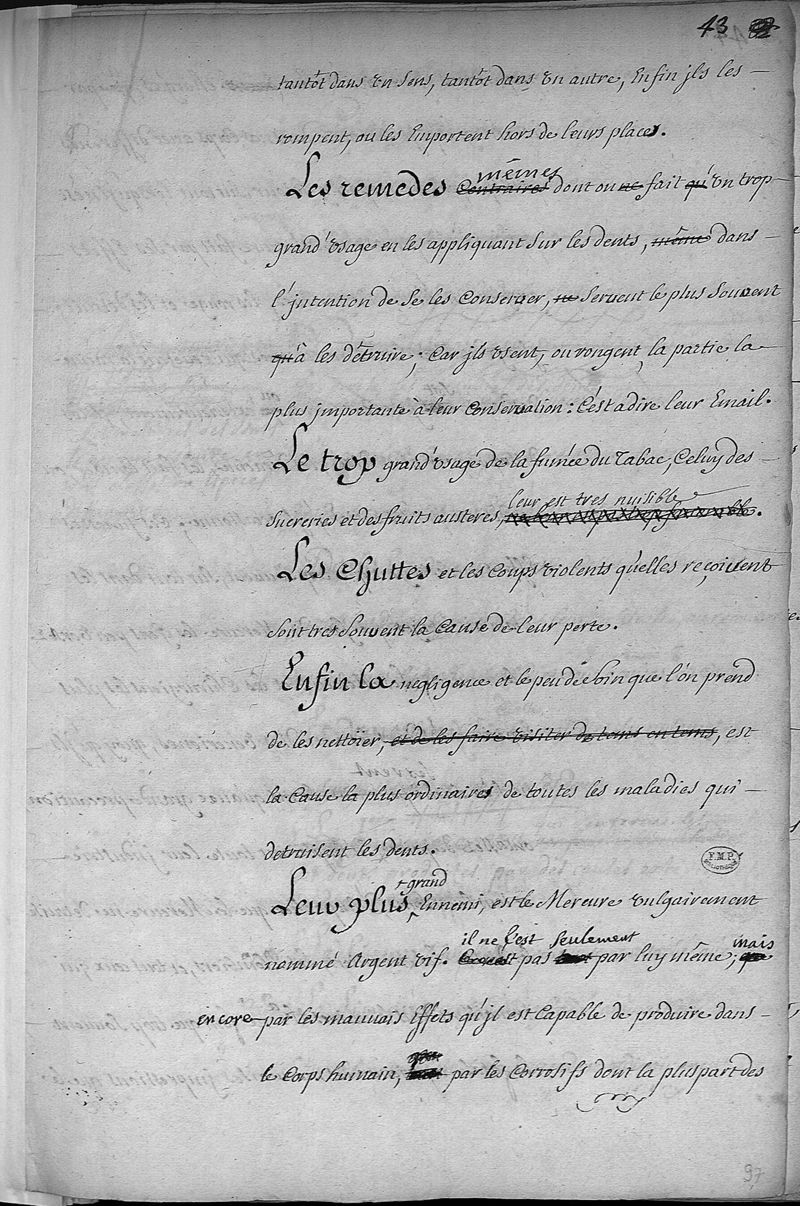 43
tantôt dans un sens, tantôt dans un autre, Enfin jls les
rompent, ou les Emportent hors de leurs places.
mêmes
Les remedes Contraires dont on ne fait qu'un trop
grand usage en les appliquant sur les dents, même dans
l'jntention de se les Conserver, ne servent le plus souvent
qu'à les détruire; Car jls usent, ou rongent, la partie la
plus jmportante à leur Conservation: C'est a dire leur Email.
Le trop grand usage de la fumée du Tabac, Celuy des
leur est tres nuisible
sucreries et des fruits austeres,
Les Chuttes et les Coups violents qu'elles reçoivent
sont tres souvent la Cause de leur perte.
Enfin la negligence et le peu de soin que l'on prend
de les nettoïer, et de les faire visiter de tems en tems, est
la Cause la plus ordinaire de toutes les maladies qui
detruisent les dents.
grand
Leur plus Ennemi, est le Mercure vulgairement
il ne l'est seulement mais
nommé Argent vif. pas par luy même;
encore par les mauvais Effets qu'jl est Capable de produire dans
le Corps humain, par les Corrosifs dont la pluspart des
F.M.P.
BIBLIOTHEQUE
97